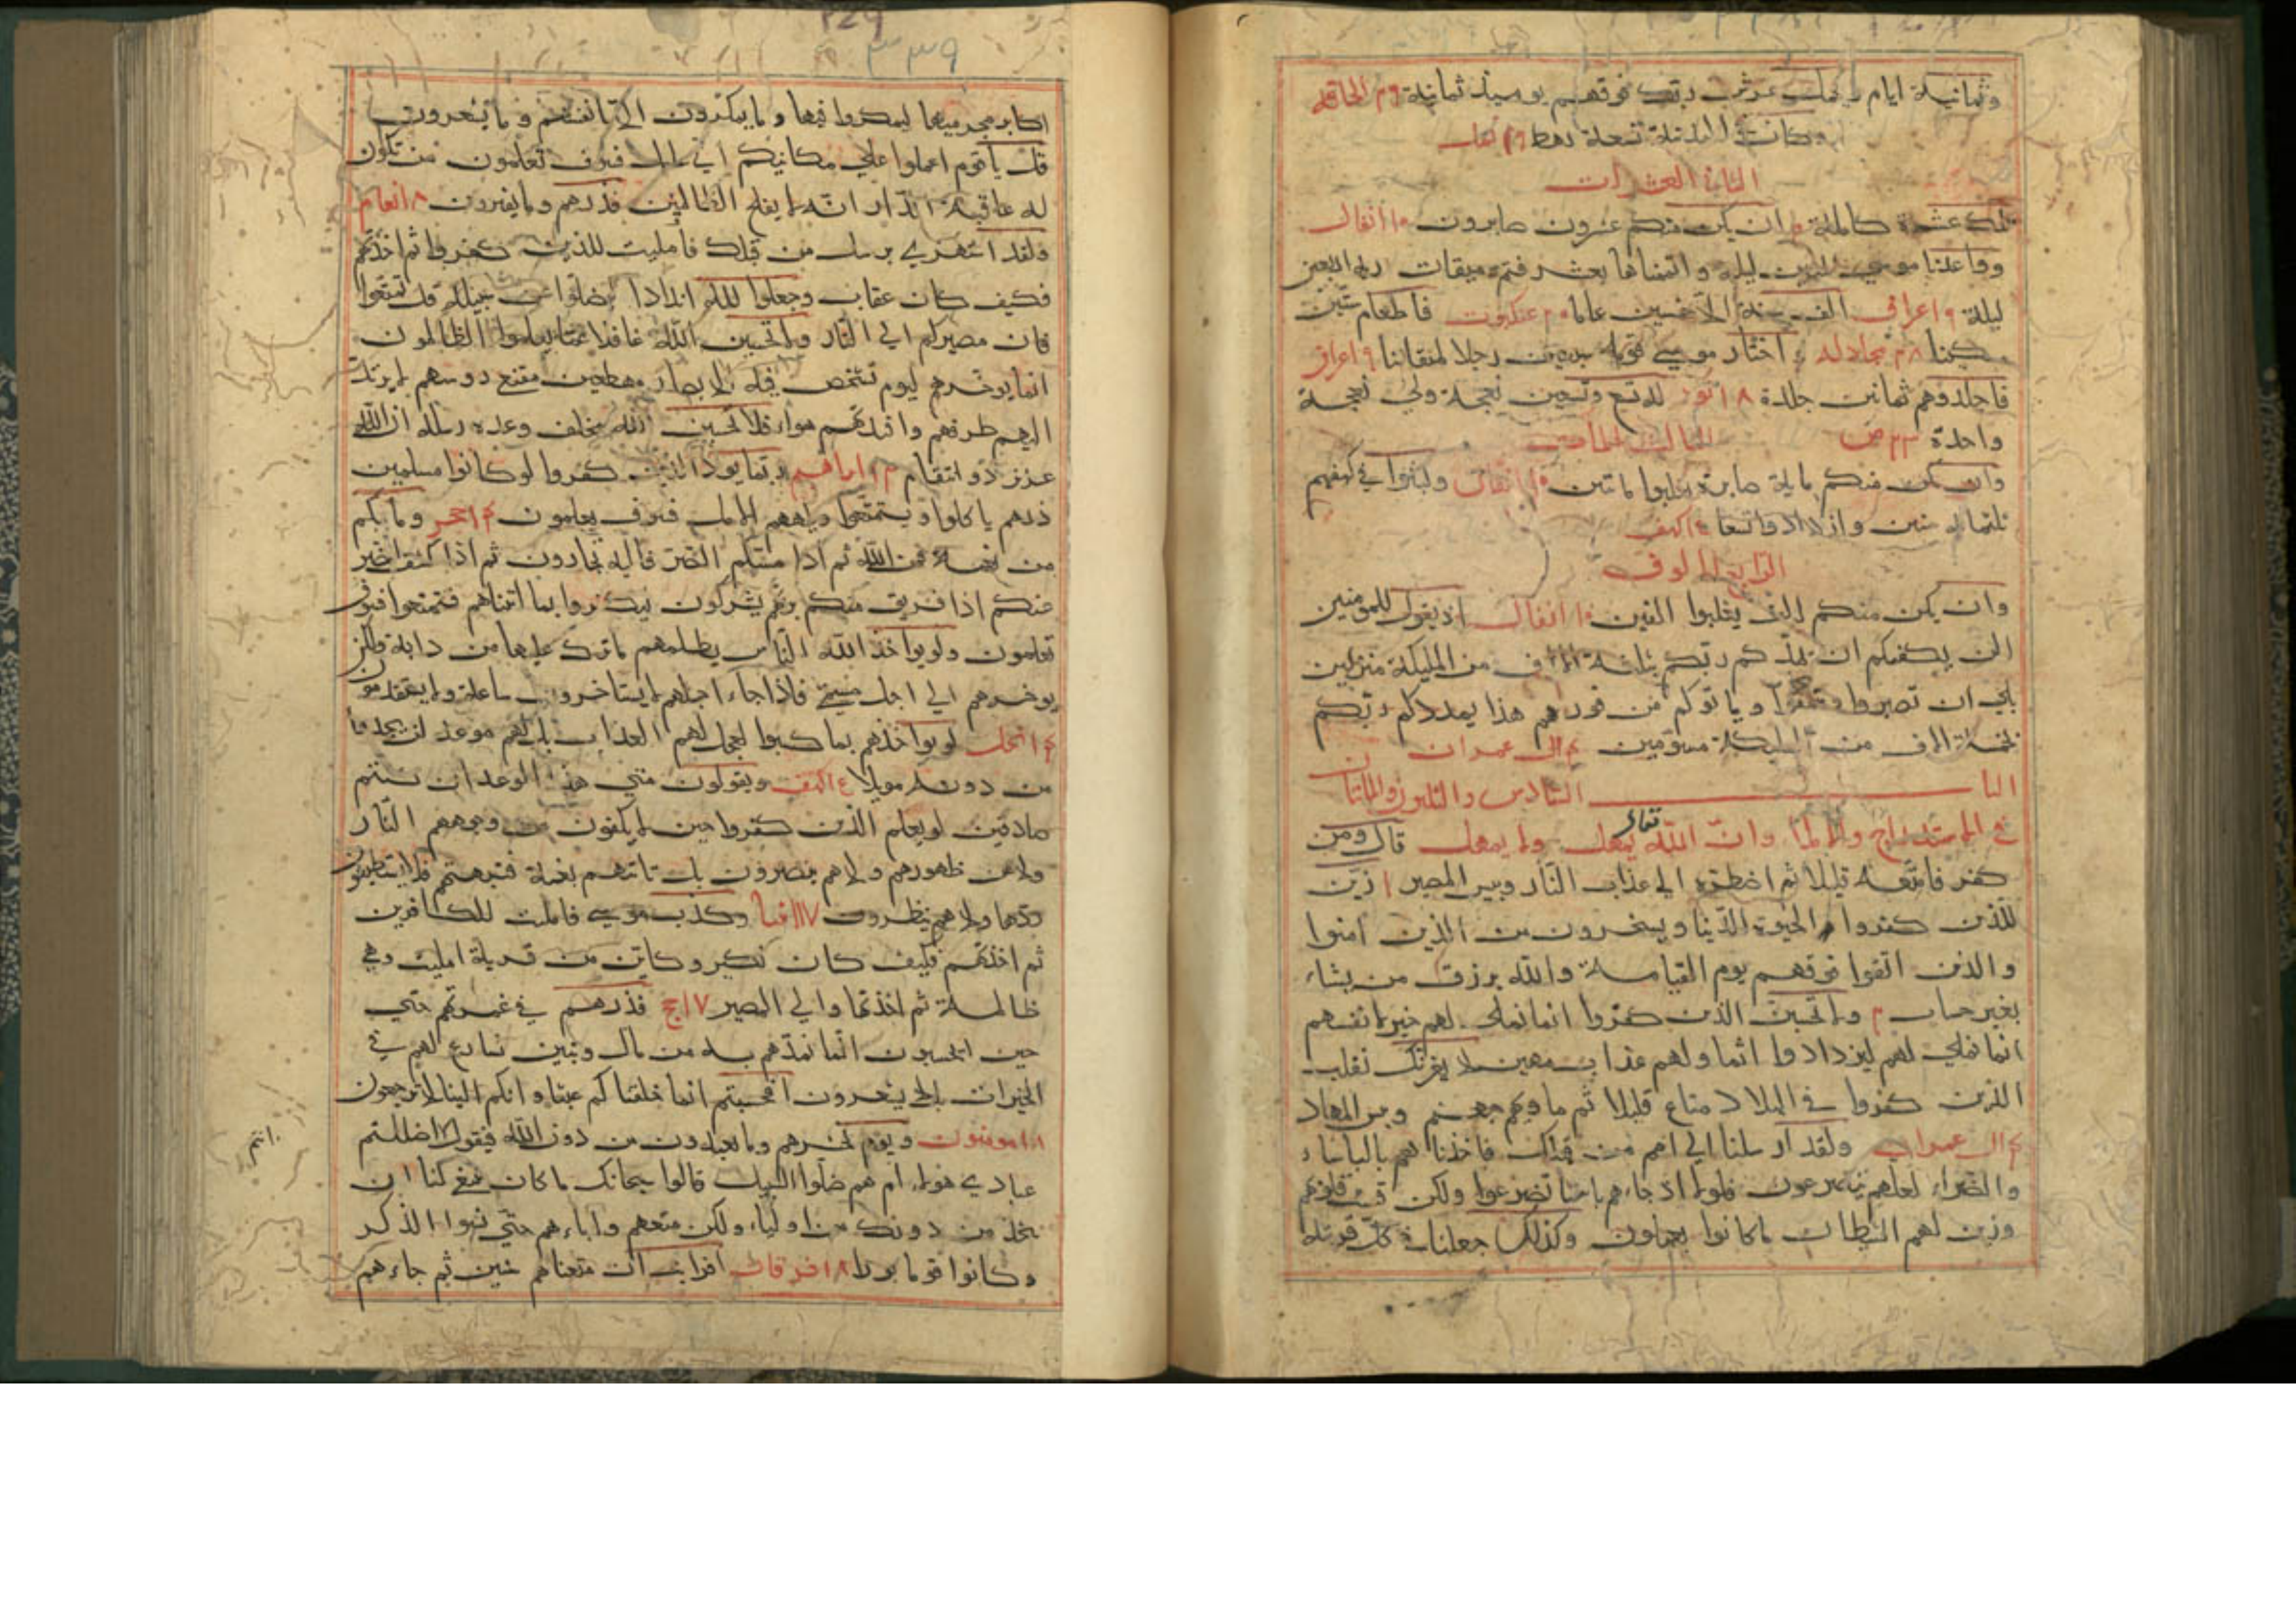 وثمانية ايام ويحمل عرش ربك فوقهم يوميذ ثمانية ٢٩ الحاقه
وكان في المدينة تسعة رهط ١٩ نمل
الثاني العشرات
تلك عشرة كاملة ٢ ان يكن منكم عشرون صابرون ١٠ انفال
وواعدنا موسي ثلثين ليلة واتممناها بعشر فتم ميقات ربه اربعين
ليلة ٩ اعراف الف سنة الا خمسين عاما ٢٠ عنكبوت فاطعام ستين
مسكينا ٢٨ مجادله واختار موسي قومه سبعين رجلا لميقاتنا ٩ اعراف
فاجلدوهم ثمانين جلدة ١٨ نور له تسع وتسعين نعجة ولي نعجة
واحدة ٢٣ ص الثالث المات
وان يكن منكم ماية صابرة يغلبوا ماتين ١٠ انفال ولبثوا في كهفهم
ثلثماية سنين وازدادوا تسعا ١٥ كهف
الرابع الالوف
وان يكن منكم الف يغلبوا الفين ١٠ انفال اذ يقول للمومنين
الن يكفيكم ان يمدكم ربكم بثلثة الاف من المليكة منزلين
بلي ان تصبروا وتتقوا وياتوكم من فورهم هذا يمددكم ربكم
بخمسة الاف من المليكة مسومين ٤ ال عمران
البا ب السادس والثلثون والماتان
في الاستدراج والاملا وان الله تعالى يمهل ولا يهمل قال ومن
كفر فامتعه قليلا ثم اضطره الي عذاب النار وبيس المصير ١ زين
للذين كفروا الحيوة الدنيا ويسخرون من الذين امنوا
والذين اتقوا فوقهم يوم القيامة والله يرزق من يشاء
بغير حساب ٢ ولا تحسبن الذين كفروا انما نملي لهم خير لانفسهم
انما نملي لهم ليزدادوا اثما ولهم عذاب مهين لا يغرنك تقلب
الذين كفروا في البلاد متاع قليلا ثم ماويهم جهنم وبيس المهاد
٤ ال عمران ولقد ارسلنا الي امم من قبلك فاخذناهم بالباساء
والضراء لعلهم يتضرعون فلولا اذ جاءهم باسنا تضرعوا ولكن قست قلوبهم
وزين لهم الشيطان ما كانوا يعملون وكذلك جعلنا في كل قرية
٣٣٩
اكابر مجرميها ليمكروا فيها وما يمكرون الا بانفسهم وما يشعرون
قل يا قوم اعملوا علي مكانتكم اني عامل فسوف تعلمون من تكون
له عاقبة الدار انه لا يفلح الظالمين فذرهم وما يفترون ٨ انعام
ولقد استهزي برسل من قبلك فامليت للذين كفروا ثم اخذتهم
فكيف كان عقاب وجعلوا لله اندادا ليضلوا عن سبيله قل تمتعوا
فان مصيركم الي النار ولا تحسبن الله غافلا عما يعلموا الظالمون
انما يوخرهم ليوم تشخص فيه الابصار مهطعين مقنع روسهم لا يرتد
اليهم طرفهم وافيدتهم هواء فلا تحسبن الله مخلف وعده رسله ان الله
عزيز ذو انتقام ١٣ ابراهيم ربما يود الذين كفروا لو كانوا مسلمين
ذرهم ياكلوا ويتمتعوا ويلههم الامل فسوف يعلمون ١٤ حجر وما بكم
من نعمة فمن الله ثم اذا مسكم الضر فاليه تجارون ثم اذا كشف الضر
عنكم اذا فريق منكم بربهم يشركون ليكفروا بما اتيناهم فتمتعوا فسوف
تعلمون ولو يواخذ الله الناس بظلمهم ما ترك عليها من دابة ولكن
يوخرهم الي اجل مسمي فاذا جاء اجلهم لا يستاخرون ساعة ولا يستقدمون
١٤ نحل لو يواخذهم بما كسبوا لعجل لهم العذاب بل لهم موعد لن يجدوا
من دونه مويلا ١٥ كهف ويقولون متي هذا الوعد ان كنتم
صادقين لو يعلم الذين كفروا حين لا يكفون عن وجوههم النار
ولا عن ظهورهم ولا هم ينصرون بل تاتيهم بغتة فتبهتهم فلا يستطيعون
ردها ولا هم ينظرون ١٧ انبيا وكذب موسي فامليت للكافرين
ثم اخذتهم فكيف كان نكير وكاين من قرية امليت وهي
ظالمة ثم اخذتها والي المصير ١٧ حج فذرهم في غمرتهم حتي
حين ايحسبون انما نمدهم به من مال وبنين نسارع لهم في
الخيرات بل لا يشعرون افحسبتم انما خلقناكم عبثا وانكم الينا لا ترجعون
١٨ مومنون ويوم نحشرهم وما يعبدون من دون الله فيقول اضللتم
عبادي هولاء ام هم ضلوا السبيل قالوا سبحانك ما كان ينبغي لنا ان
نتخذ من دونك من اولياء ولكن متعهم واباءهم حتي نسوا الذكر
وكانوا قوما بورا ١٨ فرقان افرايت ان متعناهم سنين ثم جاءهم
انتم